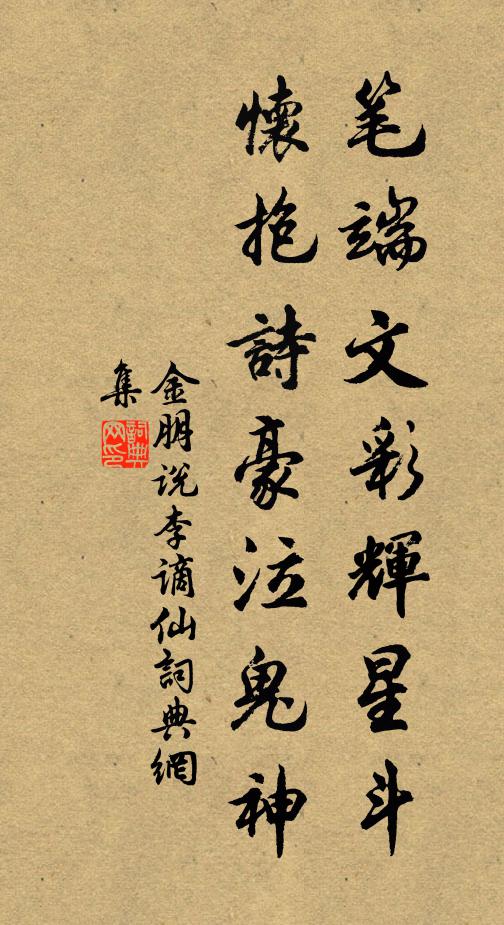 笔端文彩輝星斗
懷抱詩豪泣鬼神
金朋说李谪仙詞典網
集
詞典网印